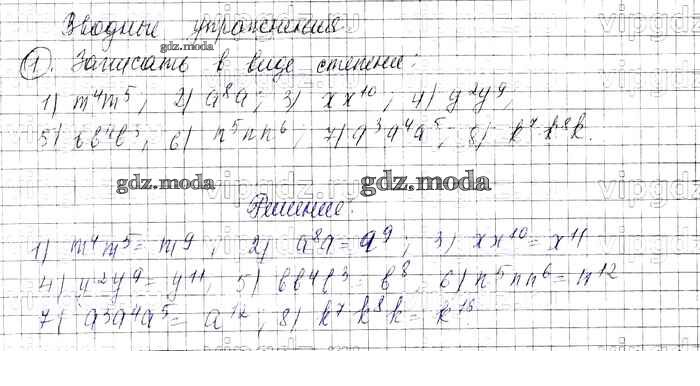 Вводные упражнения
gdz.moda
1. Записать в виде степени:
1) m⁴m⁵; 2) a⁸a; 3) xx¹⁰; 4) y²y⁹;
5) bb⁴b³; 6) n⁵nn⁶; 7) a³a⁴a⁵; 8) k⁷k⁸k.
gdz.moda gdz.moda
Решение:
1) m⁴m⁵ = m⁹; 2) a⁸a = a⁹; 3) xx¹⁰ = x¹¹
4) y²y⁹ = y¹¹, 5) bb⁴b³ = b⁸, 6) n⁵nn⁶ = n¹²
7) a³a⁴a⁵ = a¹²; 8) k⁷k⁸k = k¹⁶